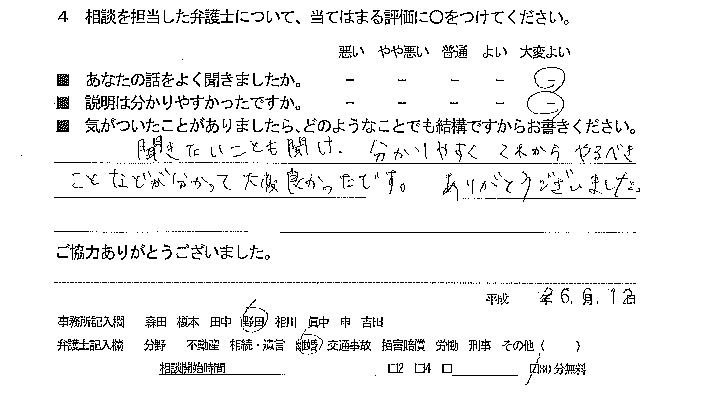 4 相談を担当した弁護士について、当てはまる評価に〇をつけてください。
悪い やや悪い 普通 よい 大変よい
■ あなたの話をよく聞きましたか。 － － － － －
■ 説明は分かりやすかったですか。 － － － － －
■ 気がついたことがありましたら、どのようなことでも結構ですからお書きください。
聞きたいことも聞け、分かりやすく これから やるべき
ことなどが分かって 大変良かったです。 ありがとうございました。
ご協力ありがとうございました。
平成 26.6.12
事務所記入欄 森田 榎本 田中 野田 相川 眞中 申 吉田
弁護士記入欄 分野 不動産 相続・遺言 離婚 交通事故 損害賠償 労働 刑事 その他（ ）
相談開始時間 □2 □4 □ ☑30分無料